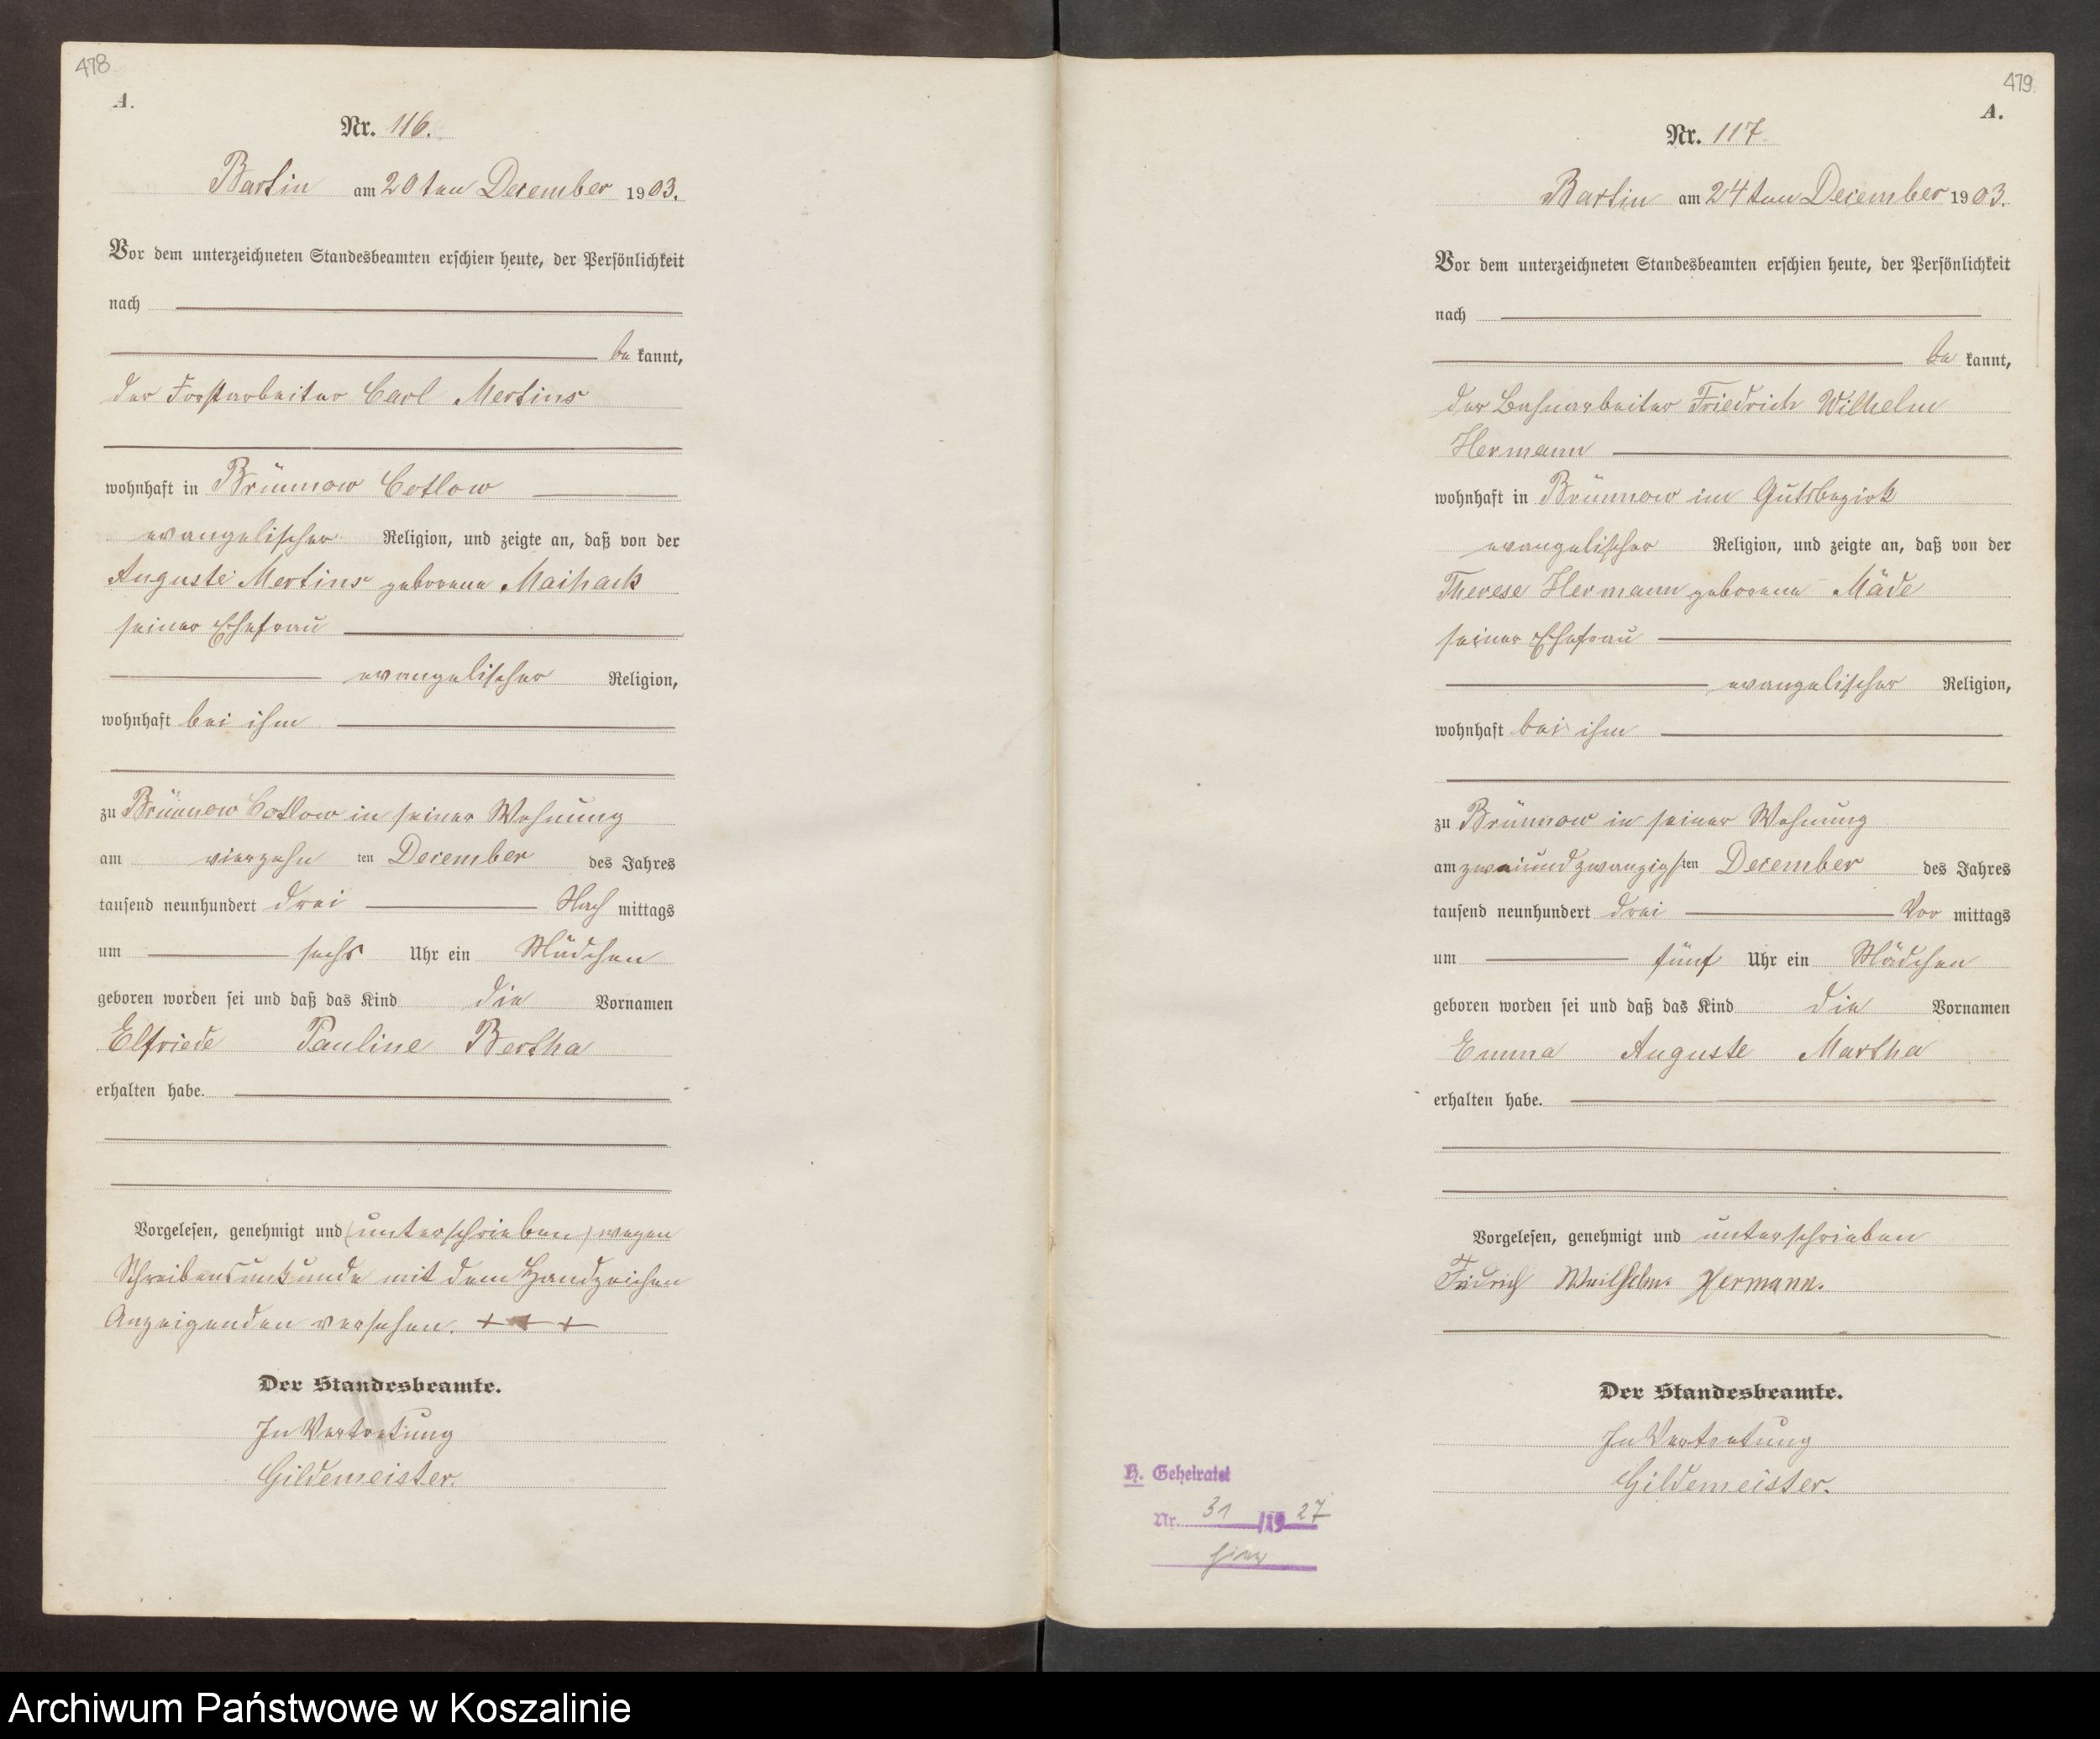 478
A.
Nr. 116.
Bartin am 20ten December 1903.
Vor dem unterzeichneten Standesbeamten erschien heute, der Persönlichkeit
nach
be kannt,
der Forstarbeiter Carl Mertins
wohnhaft in Brünnow Cotlow
evangelischer Religion, und zeigte an, daß von der
Auguste Mertins geborene Maihack
seiner Ehefrau
evangelischer Religion,
wohnhaft bei ihm
zu Brünnow Cotlow in seiner Wohnung
am vierzehn ten December des Jahres
tausend neunhundert drei Nach mittags
um sechs Uhr ein Mädchen
geboren worden sei und daß das Kind die Vornamen
Elfriede Pauline Bertha
erhalten habe.
Vorgelesen, genehmigt und (unterschrieben) wegen
Schreibensunkunde mit dem Handzeichen
Anzeigenden versehen. + + +
Der Standesbeamte.
In Vertretung
Gildemeister.
479
A.
Nr. 117
Bartin am 24ten December 1903.
Vor dem unterzeichneten Standesbeamten erschien heute, der Persönlichkeit
nach
be kannt,
der Bahnarbeiter Friedrich Wilhelm
Hermann
wohnhaft in Brünnow im Gutsbezirk
evangelischer Religion, und zeigte an, daß von der
Therese Hermann geborene Mäde
seiner Ehefrau
evangelischer Religion,
wohnhaft bei ihm
zu Brünnow in seiner Wohnung
am zweiundzwanzigsten December des Jahres
tausend neunhundert drei Vor mittags
um fünf Uhr ein Mädchen
geboren worden sei und daß das Kind die Vornamen
Emma Auguste Martha
erhalten habe.
Vorgelesen, genehmigt und unterschrieben
Fridrich Weilhelm. Hermann.
Der Standesbeamte.
In Vertretung
Gildemeister.
H. Geheiratet
Nr. 31 /19 27
hier
Archiwum Państwowe w Koszalinie